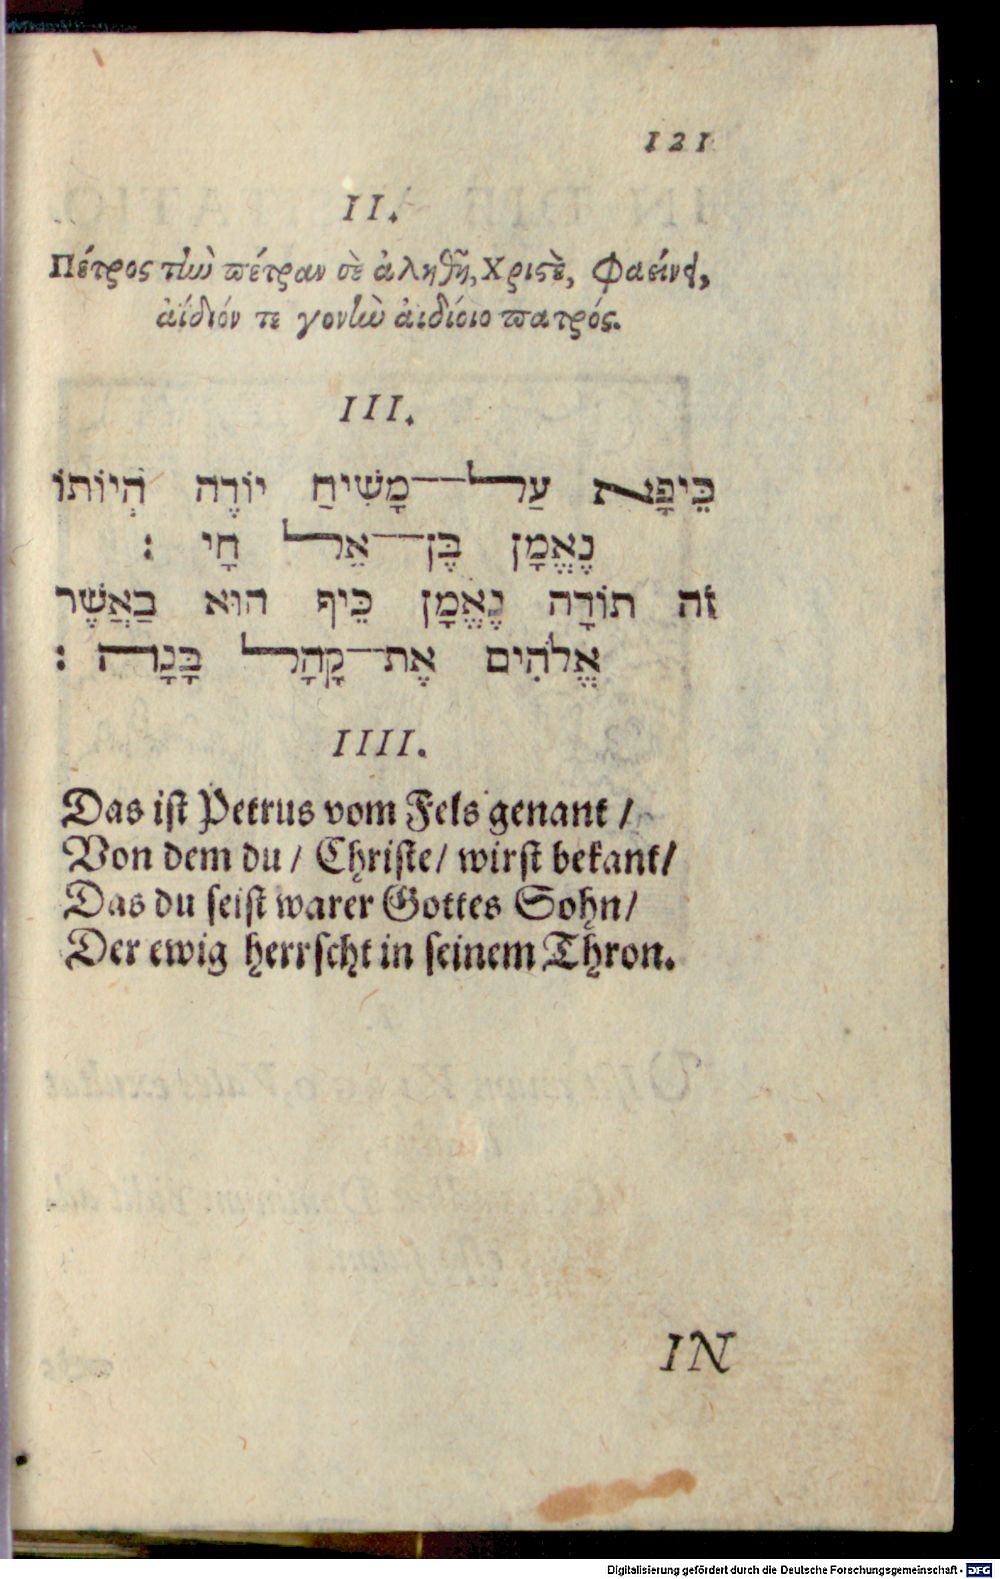 121
II.
Πέτρος τὼ πέτραν σὲ ἀληθῆ, Χριστὲ, φαείνει,
ἀΐδιόν τε γοντὼ ἀιδίοιο πατρός.
III.
כֵּיפָּא עַל־מָשִׁיחַ יוֹרֶה הְיוֹתוֹ
נֶאֱמָן בֶּן־אֵל חָי :
זֹה תוֹרָה נֶאֱמָן כֵּיף הוּא בַאֲשֶׁר
אֱלֹהִים אֶת־קָהָל בָּנָה :
IIII.
Das ist Petrus vom Fels genant /
Von dem du / Christe / wirst bekant /
Das du seist warer Gottes Sohn /
Der ewig herrscht in seinem Thron.
IN
Digitalisierung gefördert durch die Deutsche Forschungsgemeinschaft - DFG